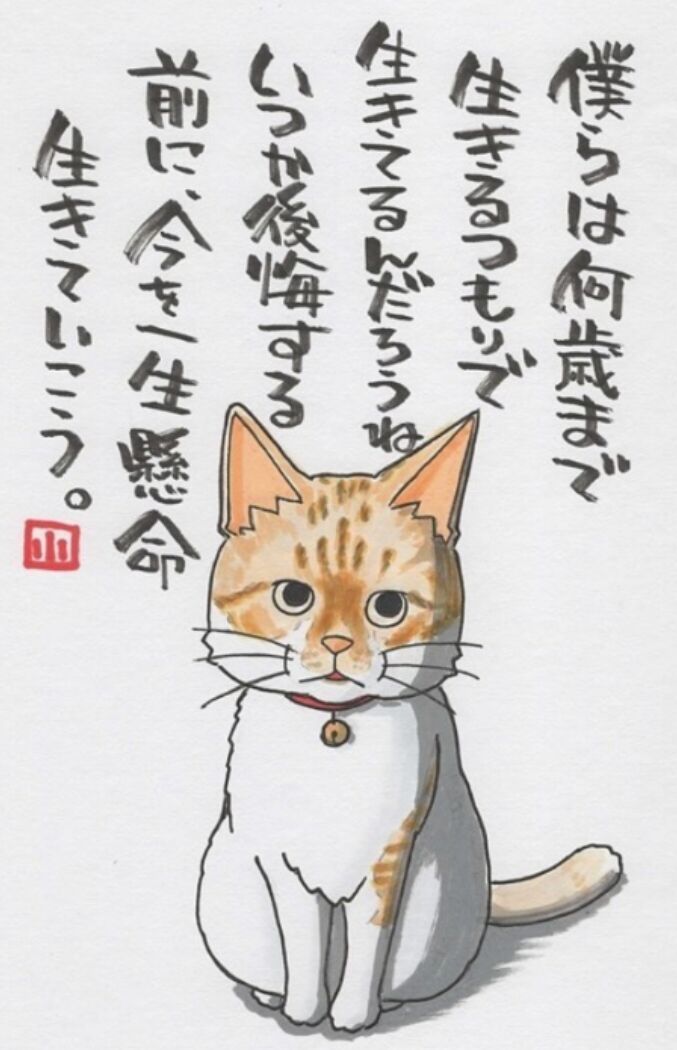 僕らは何歳まで
生きるつもりで
生きてるんだろうね
いつか後悔する
前に、今を一生懸命
生きていこう。